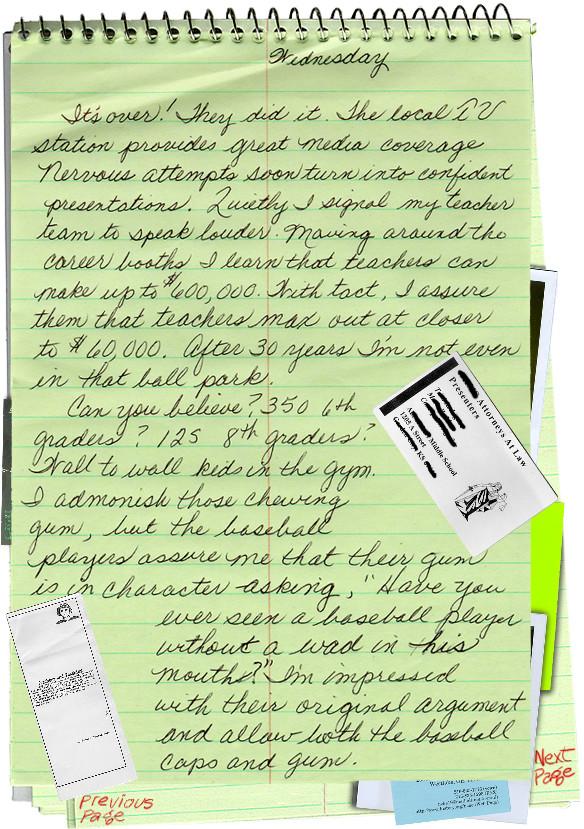 Wednesday
It's over! They did it. The local TV
station provides great media coverage
Nervous attempts soon turn into confident
presentations. Quietly I signal my teacher
team to speak louder. Moving around the
career booths I learn that teachers can
make up to $600,000. With tact, I assure
them that teachers max out at closer
to $60,000. After 30 years I'm not even
in that ball park.
Can you believe? 350 6th
graders? 125 8th graders?
Wall to wall kids in the gym.
I admonish those chewing
gum, but the baseball
players assure me that their gum
is in character asking, "Have you
ever seen a baseball player
without a wad in his
mouths?" I'm impressed
with their original argument
and allow both the baseball
caps and gum.
Attorneys At Law
Presenters
Middle School
1208 A Street
KS
Previous
Page
Next
Page